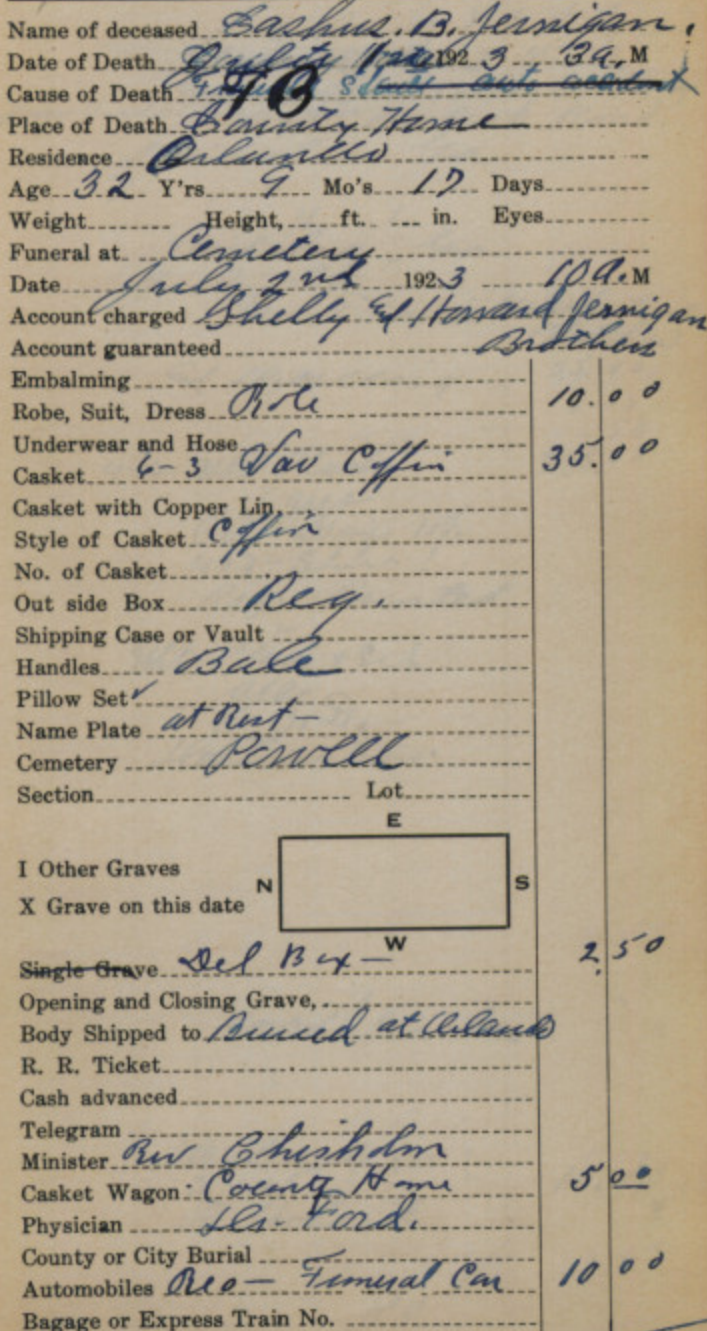 Name of deceased Cashus. B. Jernigan.
Date of Death July 1st 1923 3 a. M
Cause of Death TB auto accident
Place of Death County Home
Residence Orlando
Age 32 Y'rs 9 Mo's 17 Days
Weight Height, ft. in. Eyes
Funeral at Cemetery
Date July 2nd 1923 10 a. M
Account charged Shelly & Howard Jernigan
Account guaranteed Brothers
Embalming
Robe, Suit, Dress Robe 10.00
Underwear and Hose
Casket 6-3 Coffin 35.00
Casket with Copper Lin.
Style of Casket Coffin
No. of Casket
Out side Box Reg.
Shipping Case or Vault
Handles Bale
Pillow Set ✓
Name Plate at Rest —
Cemetery Powell
Section Lot
E
I Other Graves
N S
X Grave on this date
W
Single Grave Del Box — 2.50
Opening and Closing Grave,
Body Shipped to Buried at Orlando
R. R. Ticket
Cash advanced
Telegram
Minister Rev Chisholm
Casket Wagon County Home 5 00
Physician Dr. Ford.
County or City Burial
Automobiles Reo — Funeral Car 10 00
Bagage or Express Train No.